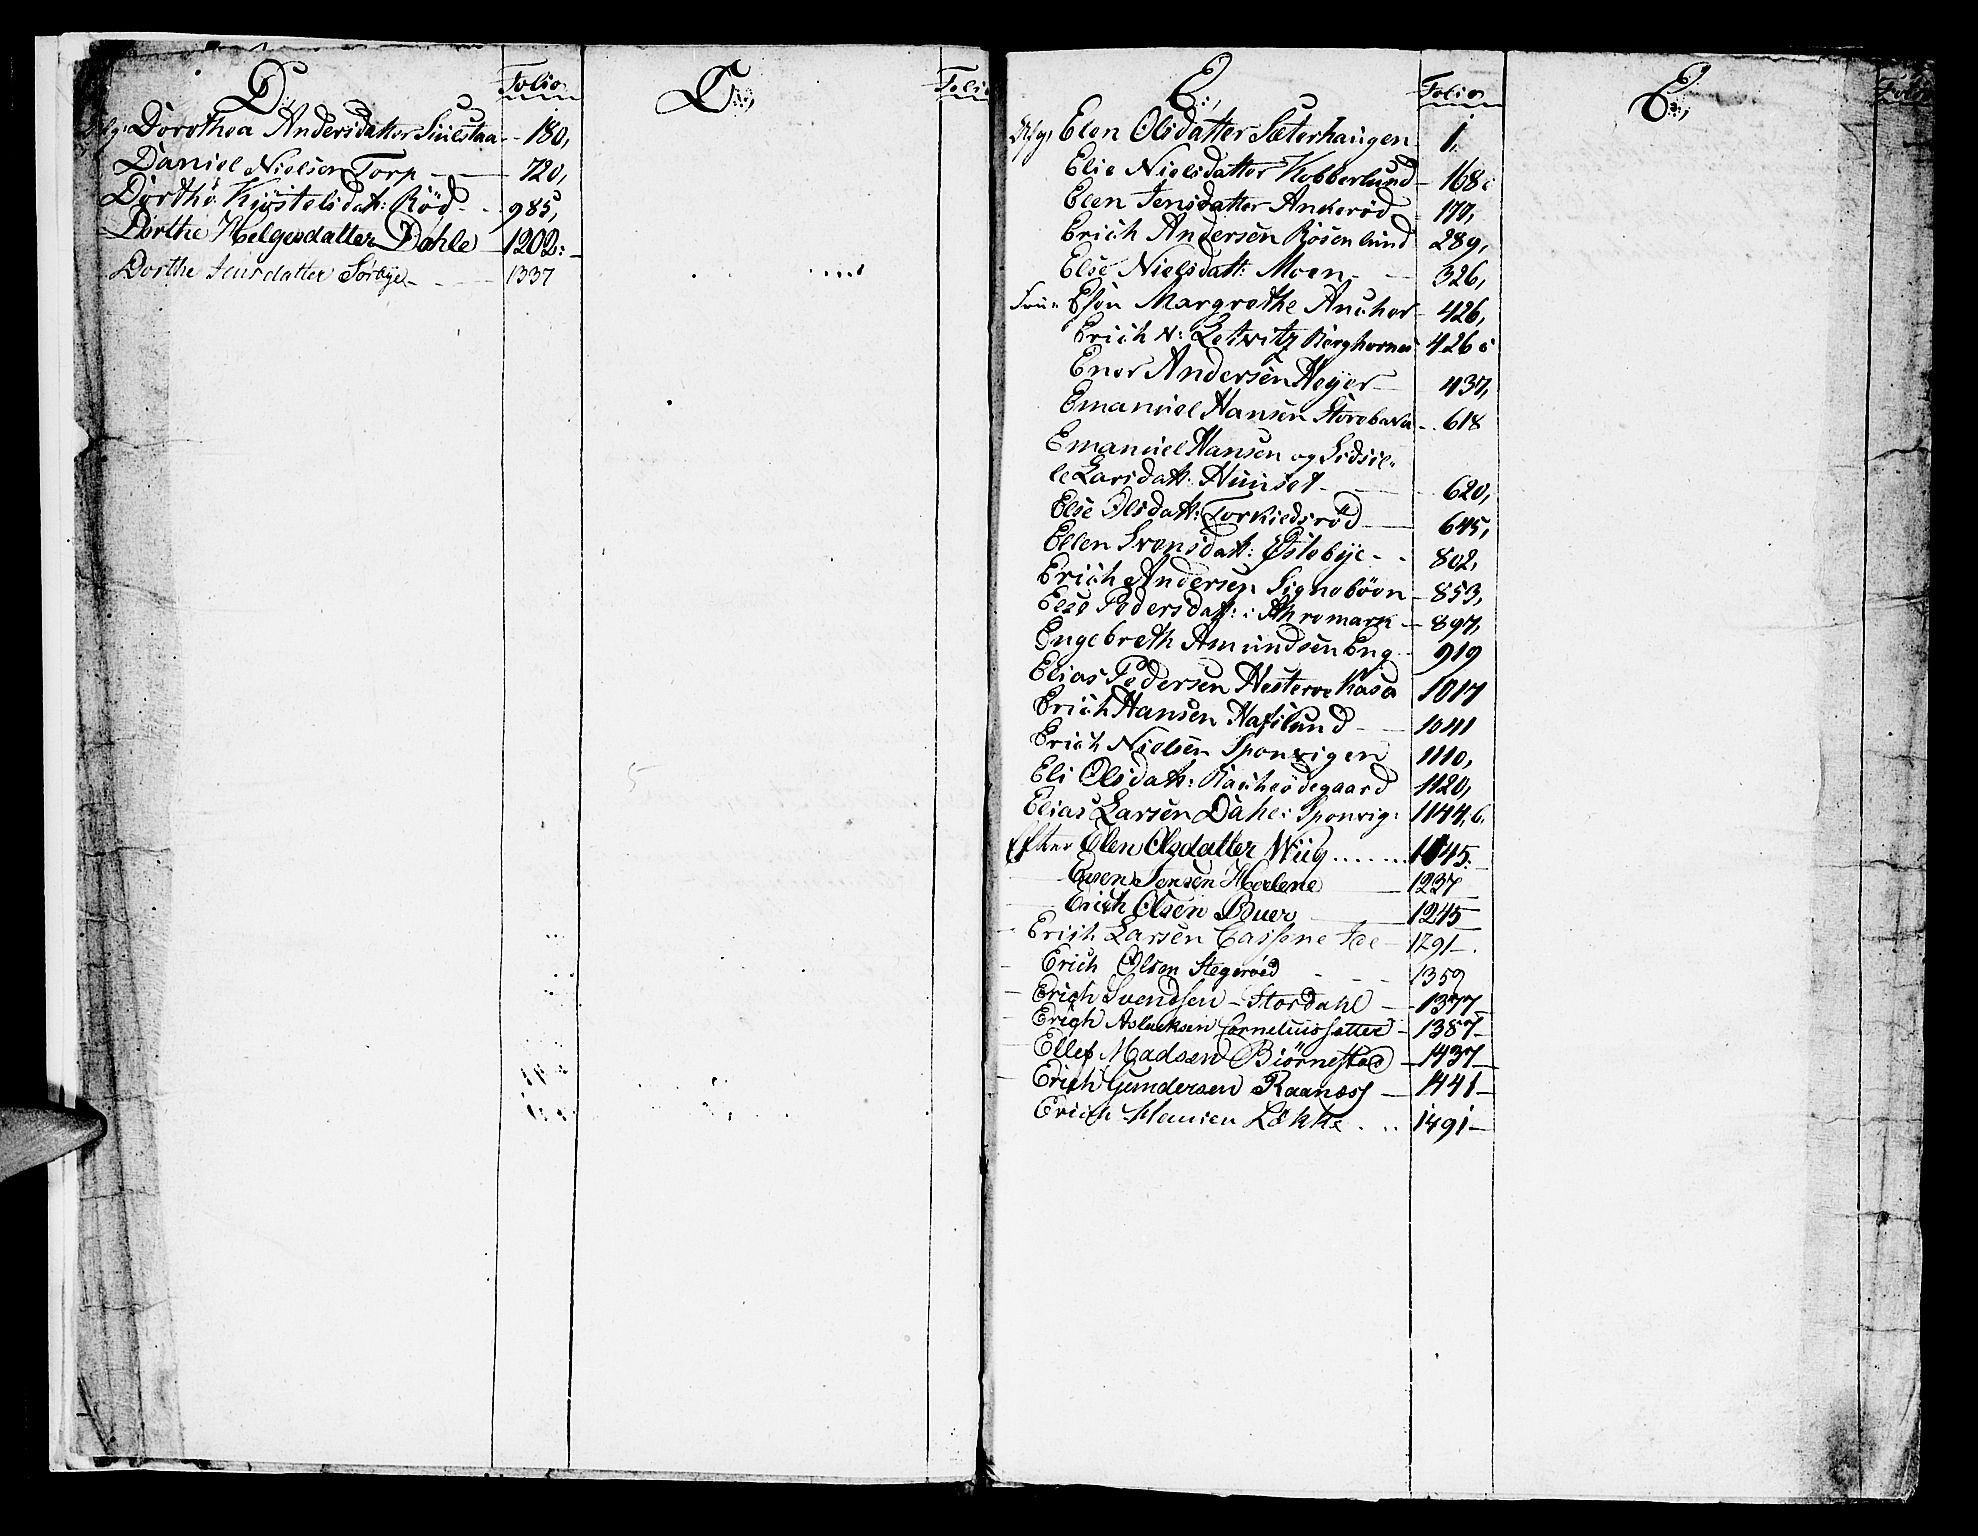 D. Folio
Dorothea Andersdatter Siulstaa - 180,
Daniel Nielsen Torp - 720,
Dorthe Kiøstelsdatt: Rød - 985,
Dorthe Helgesdatter Dahle - 1202:
Dorthe Jensdatter Sørbye - 1337
D. Folio
E. Folio
Elen Olsdatter Sæterhaugen 1.
Elie Nielsdatter Kobberlund - 168
Elen Jensdatter Ankerød - 177,
Erich Andersen Rosenlund 289,
Else Nielsdatt: Moen - 326,
Frue Margrethe Ancher - 426,
Erich N: Letwitz 426
Ener Andersen Heyer 437,
Emanuel Hansen - 618
Emanuel Hansen og Sidsel-
le Larsdatt: Hunset - 620,
Else Olsdatt: Torkildsrød 645,
Ellen Svensdatt: Østebye - - 802,
Erich Andersen Signebøen - 853,
Else Pedersdatt: Ahremark - 897,
Engebreth Amundsen Eng - 919
Elias Pedersen 1017
Erich Hansen Hafslund - 1041
Erich Nielsen Sponvigen 1110,
Eli Olsdatt: 1120,
Elias Larsen Dahe: Sponvig: 1144.
Efter Elen Olsdatter Wiig ....... 1145:
Even Jensen 1237
Erich Olsen Buer 1245
Erich Larsen 1291 -
Erich Olsen Stegerøed - - - 1359
Erich Svendsen - Stordahl - 1377
Erich Aslacksen Corneliussætter - 1387 -
Ellef Madsen Biørnestad - 1437 -
Erich Gundersen Raaness - 1441 -
Erich Hansen Løkke . .. 1491 -
E. Folio